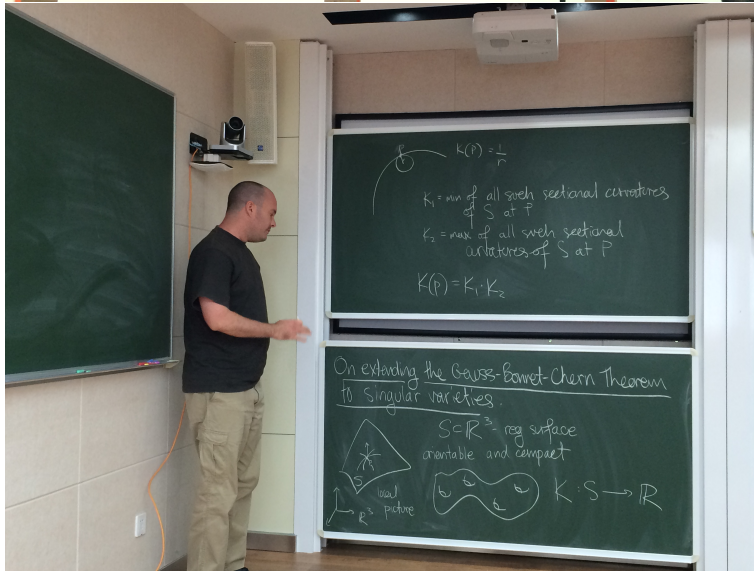 K(p) = 1/r
K₁ = min of all such sectional curvatures
of S at P
K₂ = max of all such sectional
curvatures of S at P
K(p) = K₁·K₂
On extending the Gauss-Bonnet-Chern Theorem
to singular varieties.
S⊂ℝ³ - reg surface
orientable and compact
S
local
picture
ℝ³
K : S → ℝ